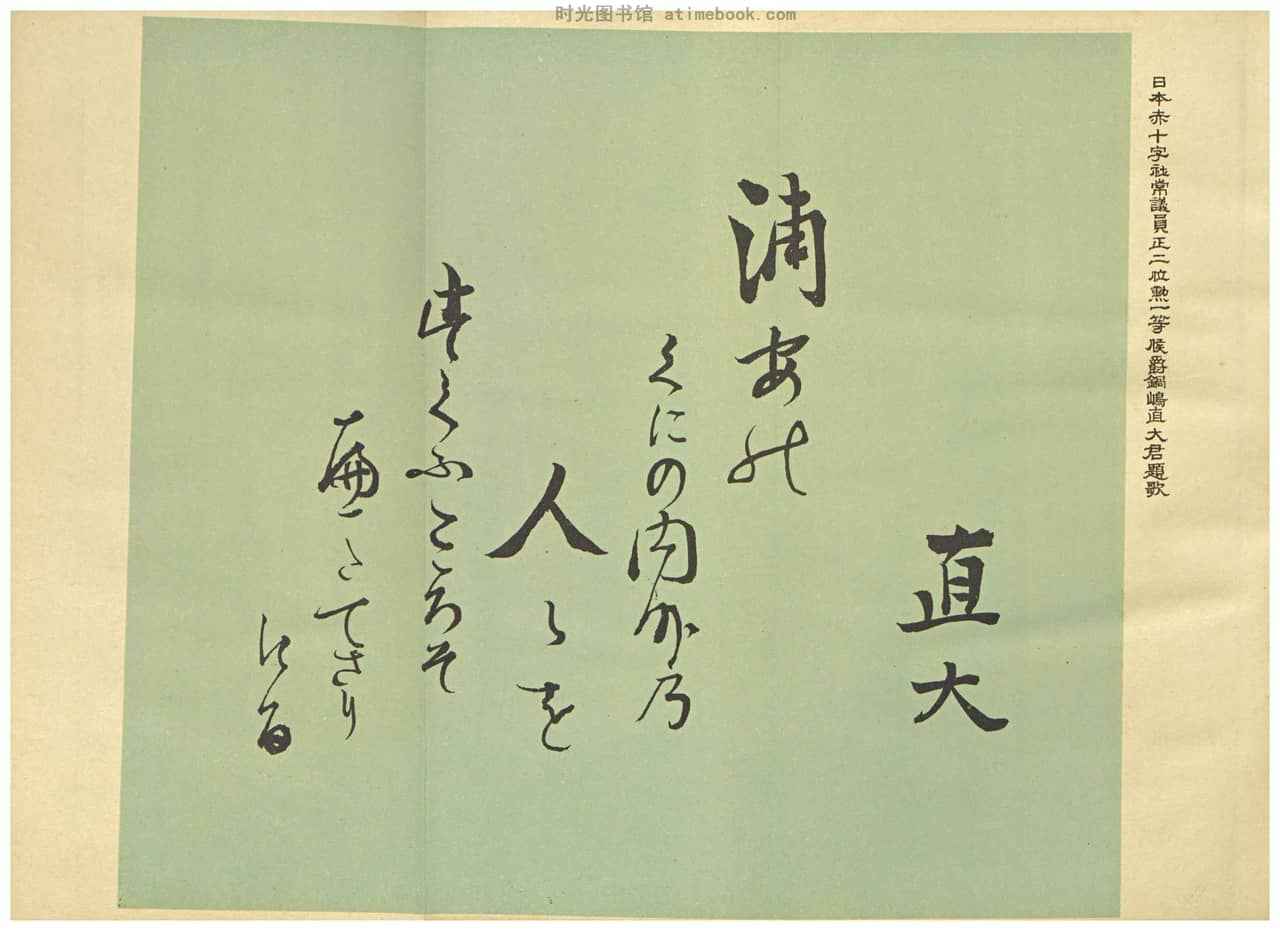 时光图书馆 atimebook.com
日本赤十字社常議員正二位勲一等侯爵鍋嶋直大君題歌
直大
浦安能
くにの内外乃
人々を
す くふこゝろそ
てさり